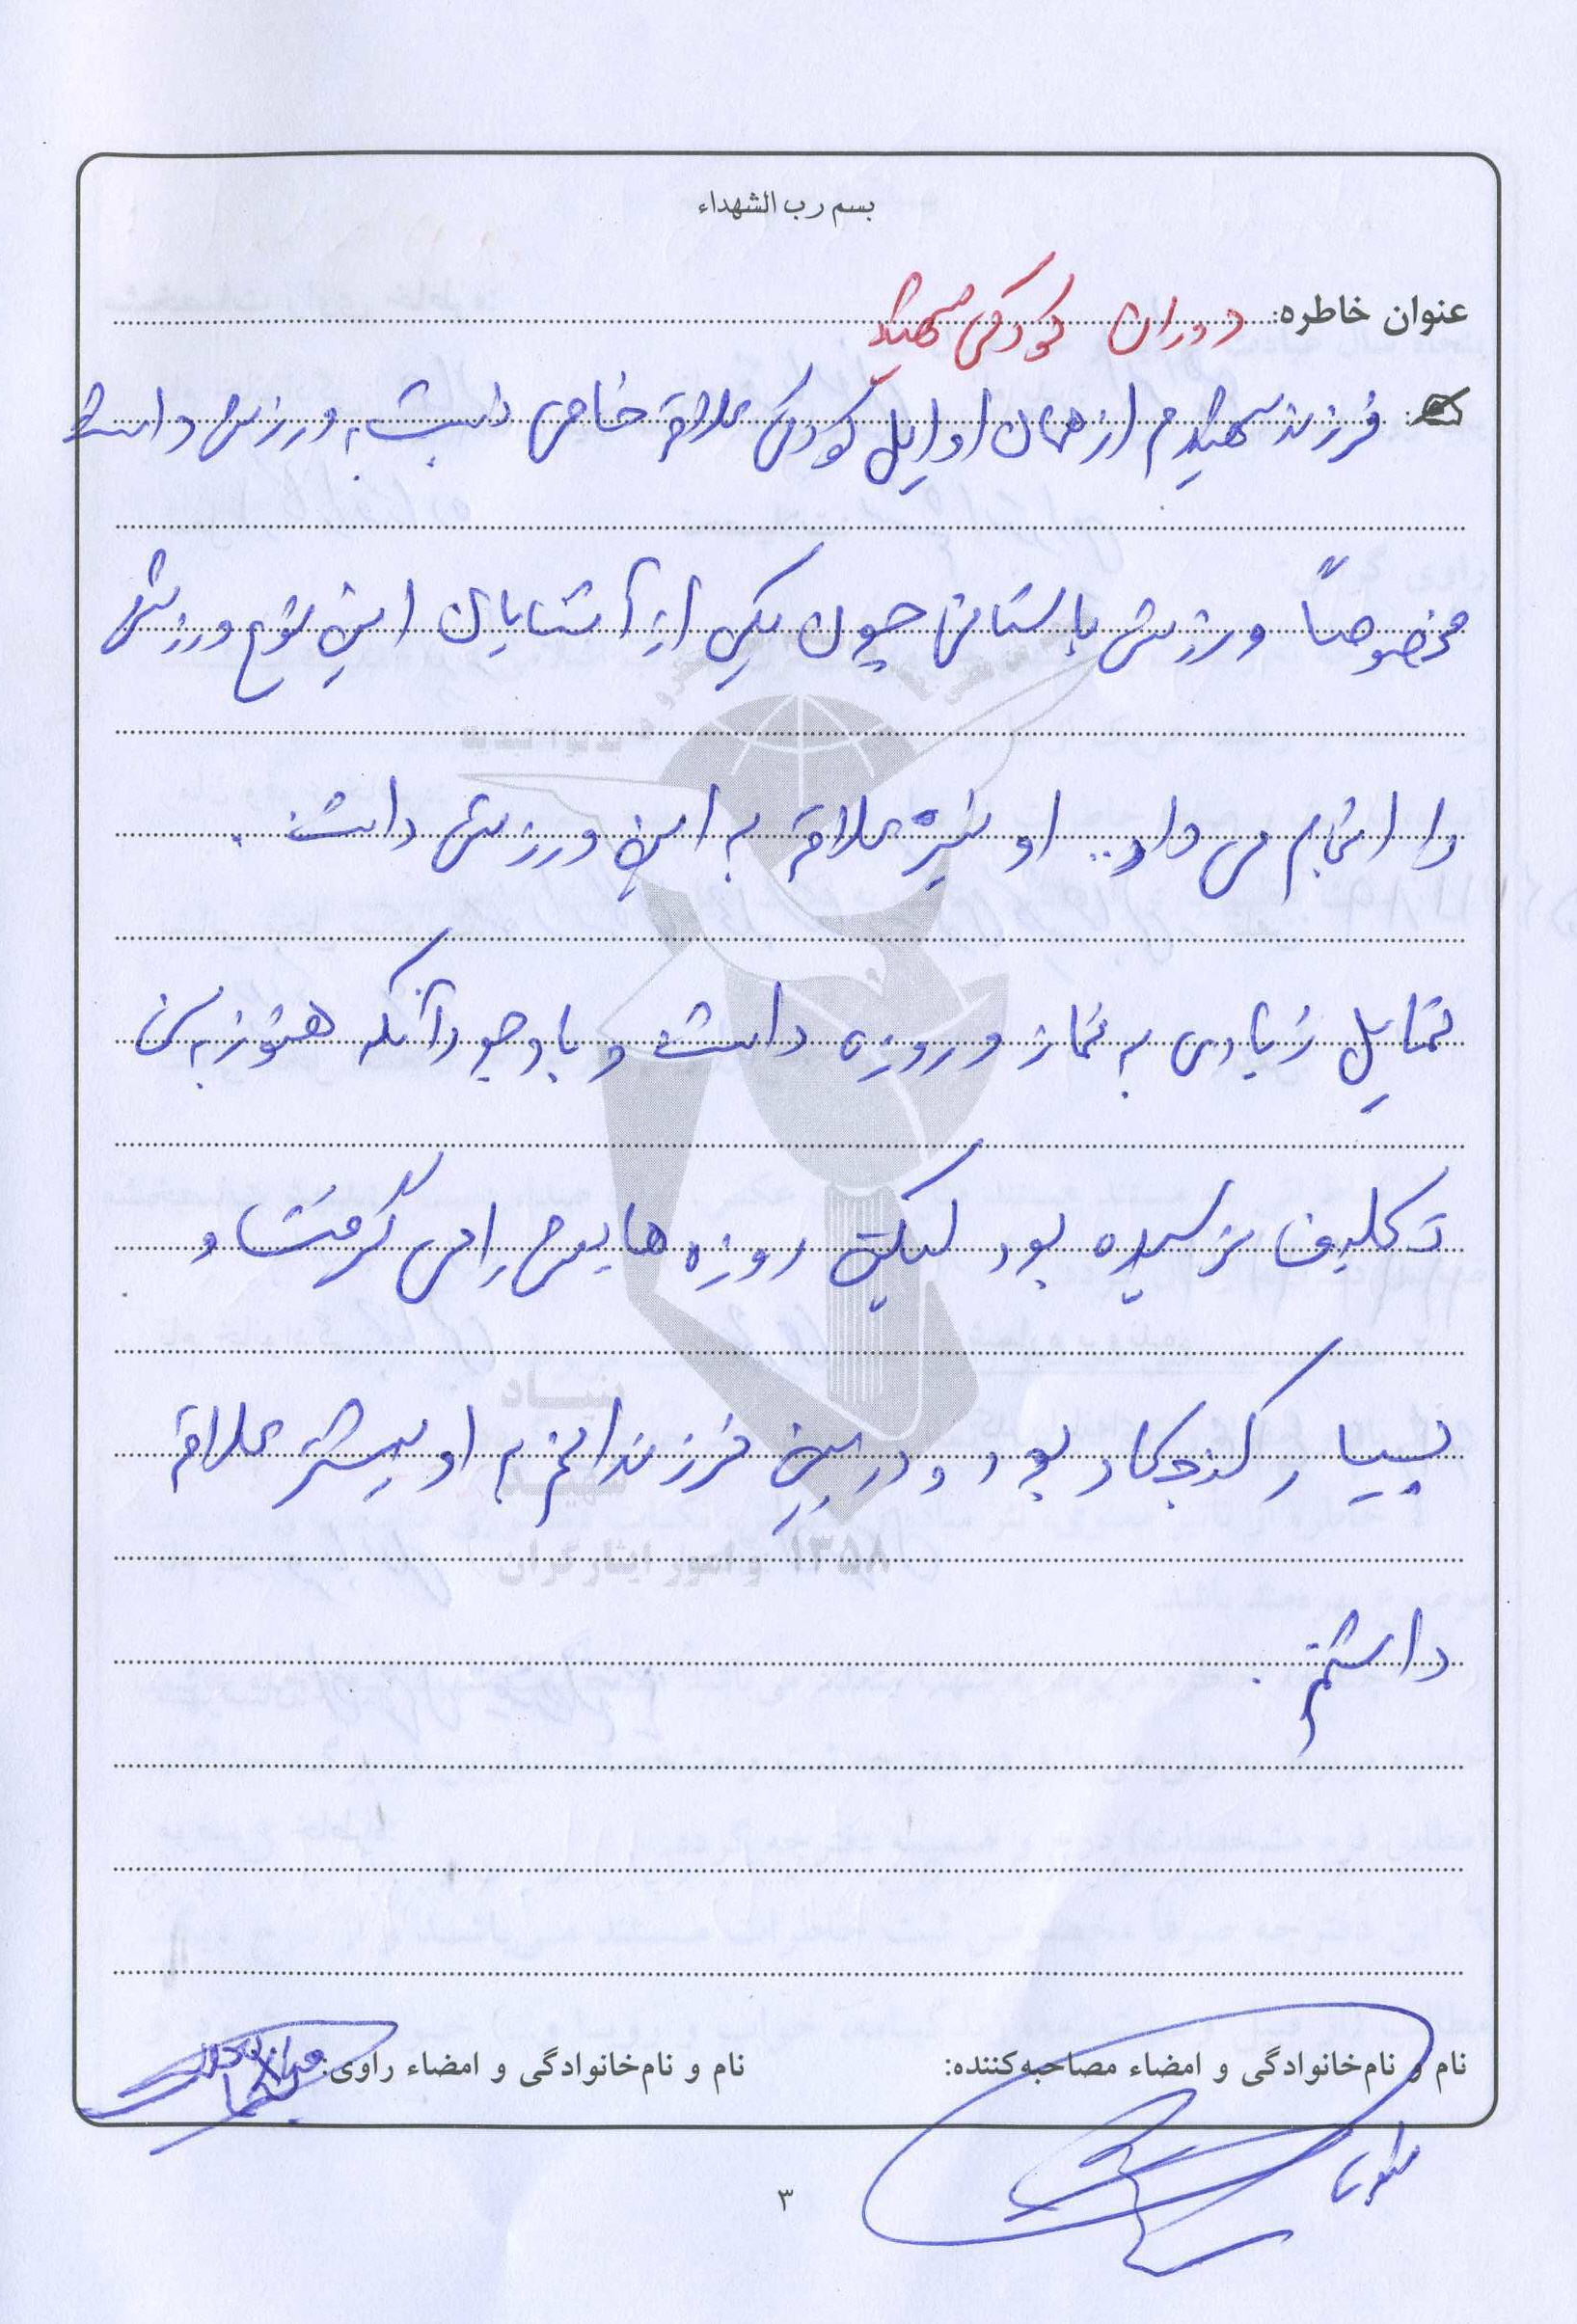 بسم رب الشهداء
عنوان خاطره: دوران کودکی شهید
فرزند شهیدم از همان اوایل کودکی علاقه خاصی نسبت به ورزش داشت
مخصوصاً ورزش باستانی چون یکی از آشنایان این نوع ورزش
را انجام می داد. او نیز علاقه به این ورزش داشت.
تمایل زیادی به نماز و روزه داشت و با وجود آنکه هنوز به سن
تکلیف نرسیده بود لیکن روزه هایش را می گرفت و
بسیار کنجکاو بود و در بین فرزندانم به او بیشتر علاقه
داشتم.
بنیاد
شهید
و امور ایثارگران ۱۳۵۸
نام و نام‌خانوادگی و امضاء مصاحبه‌کننده:
نام و نام‌خانوادگی و امضاء راوی:
۳